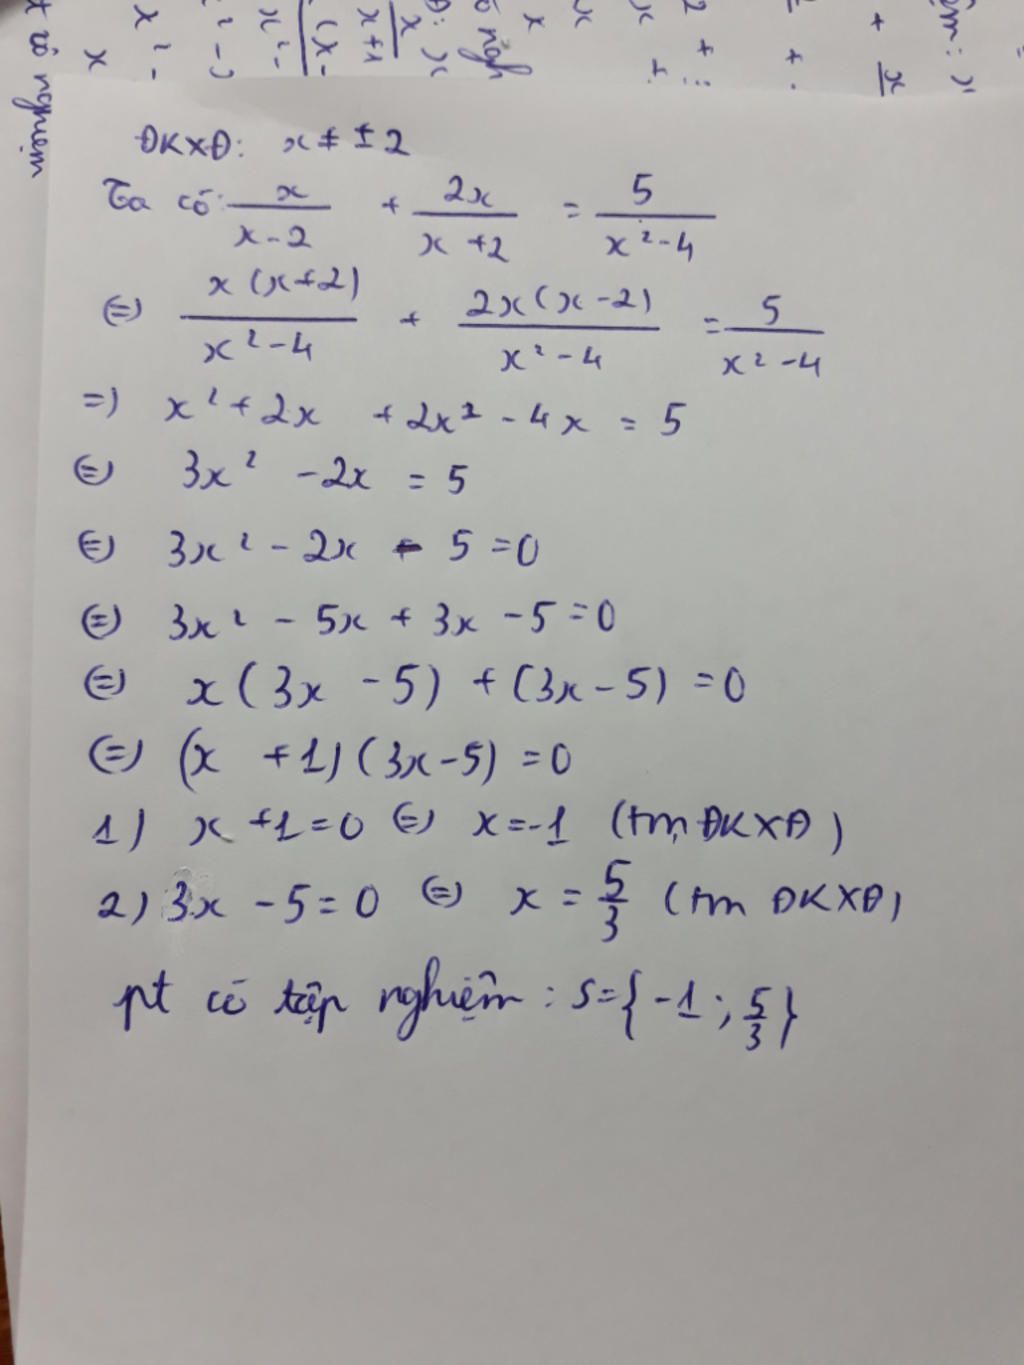 ĐKXĐ: x ≠ ±2
Ta có: x/(x-2) + 2x/(x+2) = 5/(x²-4)
⇔ x(x+2)/(x²-4) + 2x(x-2)/(x²-4) = 5/(x²-4)
=> x² + 2x + 2x² - 4x = 5
⇔ 3x² - 2x = 5
⇔ 3x² - 2x - 5 = 0
⇔ 3x² - 5x + 3x - 5 = 0
⇔ x(3x - 5) + (3x - 5) = 0
⇔ (x + 1)(3x - 5) = 0
1) x + 1 = 0 ⇔ x = -1 (tm ĐKXĐ)
2) 3x - 5 = 0 ⇔ x = 5/3 (tm ĐKXĐ)
pt có tập nghiệm: S = {-1; 5/3}